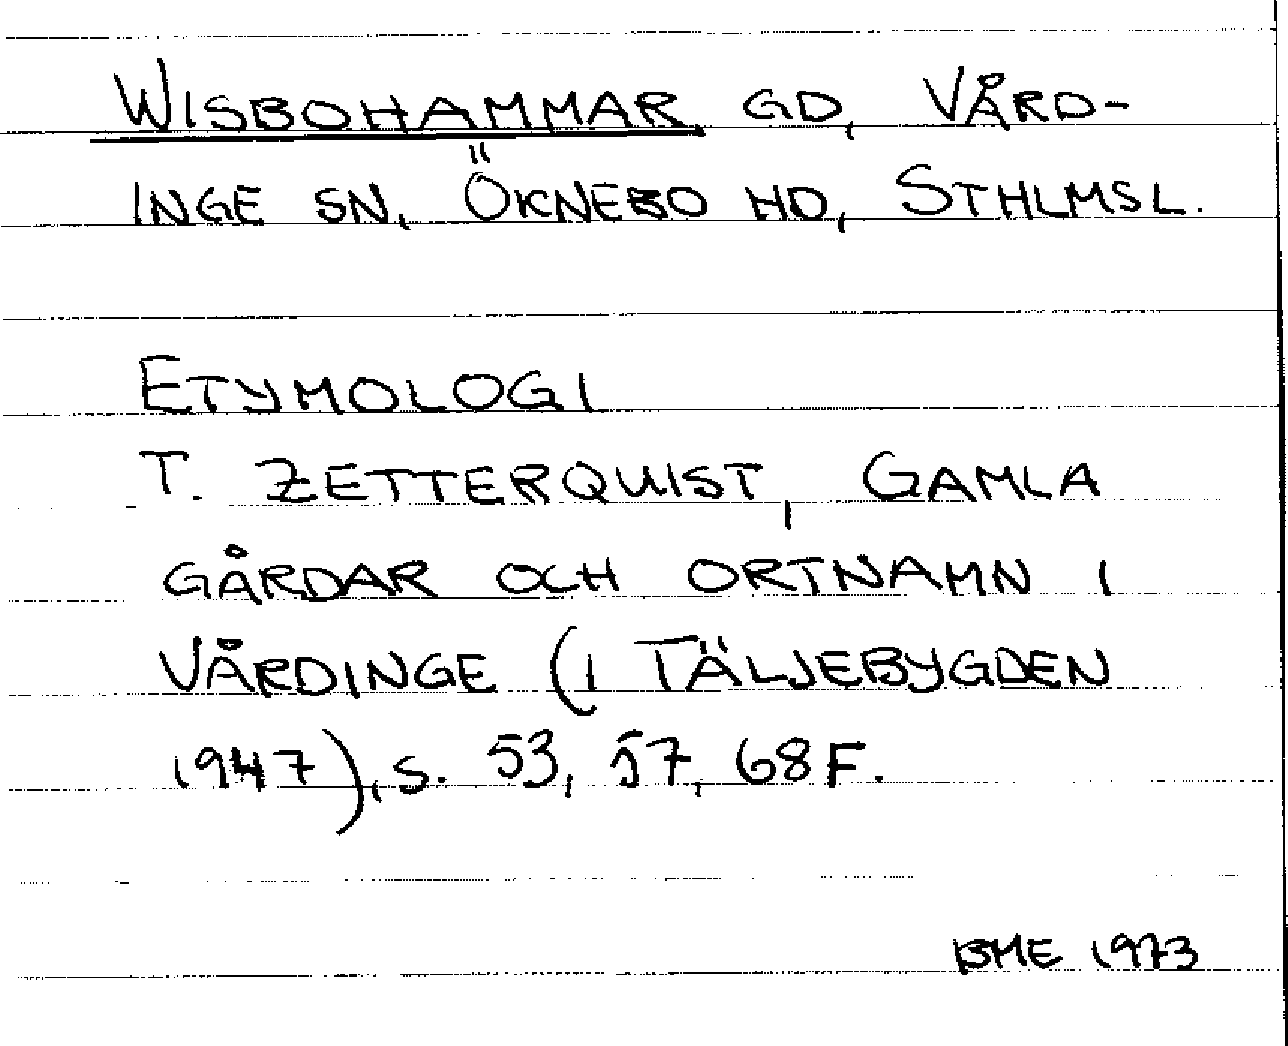 WISBOHAMMAR GD, VÅRD-
INGE SN, ÖKNEBO HD, STHLMSL.
ETYMOLOGI
T. ZETTERQUIST, GAMLA
GÅRDAR OCH ORTNAMN I
VÅRDINGE (I TÄLJEBYGDEN
1947), S. 53, 57, 68 F.
BME 1973